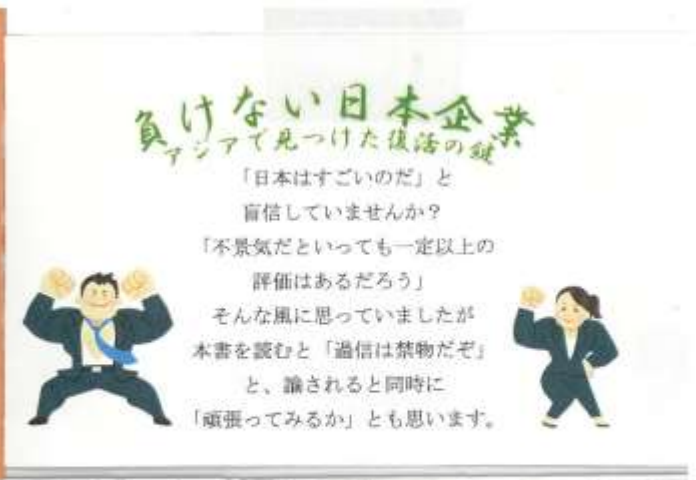 負けない日本企業
アジアで見つけた復活の鍵
「日本はすごいのだ」と
盲信していませんか？
「不景気だといっても一定以上の
評価はあるだろう」
そんな風に思っていましたが
本書を読むと「過信は禁物だぞ」
と、諭されると同時に
「頑張ってみるか」とも思います。